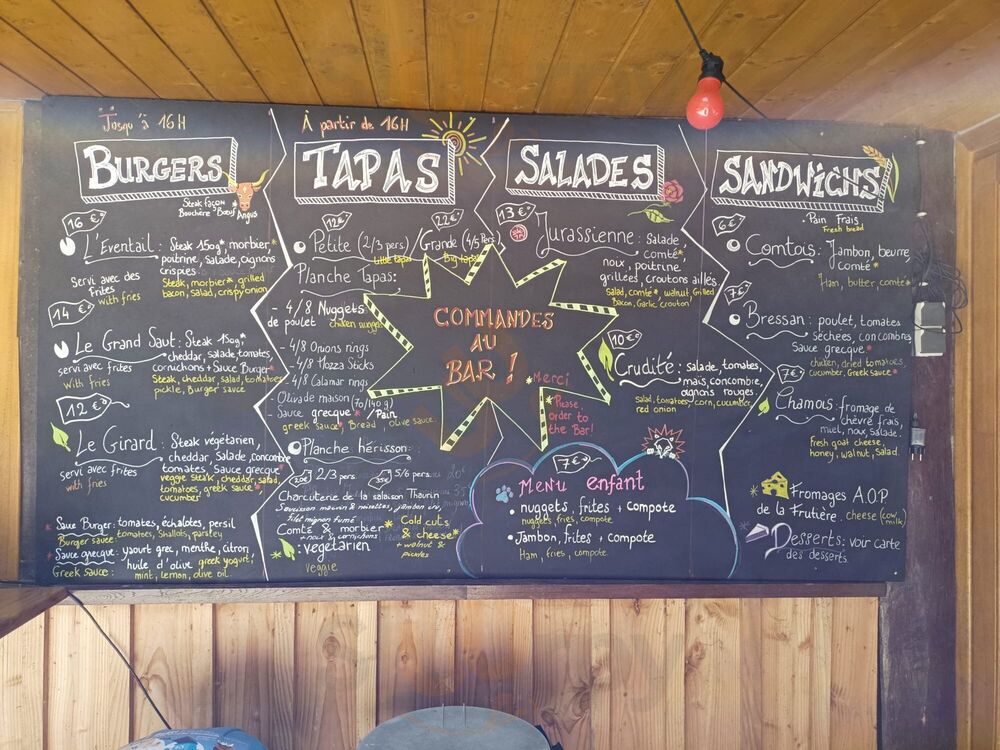 Jusqu'à 16H
BURGERS
Steak façon
Bouchère Bœuf Angus
16€
L'Eventail : Steak 150g*, morbier,*
poitrine, Salade, oignons
crispes.
Steak, morbier* grilled
bacon, salad, crispy onion
servi avec des
frites
with fries
14 €
Le Grand Saut : Steak 150g,*
cheddar, salade, tomates,
cornichons + Sauce Burger*
Steak, cheddar, salad, tomatoes
pickle, Burger sauce
servi avec frites
with fries
12 €
Le Girard : Steak végétarien,
cheddar, Salade, concombre
tomates, Sauce grecque*
veggie steak, cheddar, salad,
tomatoes, greek sauce*,
cucumber
servi avec frites
with fries
* Sauce Burger: tomates, échalotes, persil
Burger sauce: tomatoes, Shallots, parsley
* Sauce grecque: yaourt grec, menthe, citron,
huile d'olive greek yogurt,
Greek sauce: mint, lemon, olive oil.
À partir de 16H
TAPAS
12€
22€
Petite (2/3 pers.) / Grande (4/5 Pers)
Little tapas Big tapas
Planche Tapas:
- 4/8 Nuggets
de poulet chicken nuggets
- 4/8 Onions rings
- 4/8 Mozza Sticks
- 4/8 Calamar rings
- Olivade maison (70/140g)
- Sauce grecque* / Pain
greek sauce*, Bread, olive sauce.
Planche hérisson:
20€ 2/3 pers. 35€ 5/6 pers.
Charcuterie de la salaison Thaurin
Saucisson maison & noisettes, jambon cru,
filet mignon fumé
Comté & morbier
+ noix & cornichons
* Cold cuts
& cheese*
+ walnut &
pickles
: vegetarien
veggie
COMMANDES
AU
BAR !
* Merci
* Please,
order to
the Bar!
SALADES
13 €
Jurassienne : Salade,
comté*
noix, poitrine
grillées, croutons aillés,
Salad, comté*, walnut, Grilled
Bacon, Garlic crouton
10€
Crudité : salade, tomates,
maïs, concombre,
oignons rouges
salad, tomatoes, corn, cucumber,
red onion
7€
MENU enfant
• nuggets, frites + compote
nuggets, fries, compote
• Jambon, frites + compote
Ham, fries, compote
SANDWICHS
- Pain Frais
Fresh bread
6€
Comtois : Jambon, beurre,
comté*
Ham, butter, comté*
7€
Bressan : poulet, tomates
séchées, concombres
Sauce grecque*
chicken, dried tomatoes,
cucumber, Greek sauce*
7€
Chamois : fromage de
chèvre frais,
miel, noix, salade.
Fresh goat cheese,
honey, walnut, Salad.
* Fromages A.O.P
de la Frutière. cheese (cow
milk)
* Desserts: voir carte
des desserts.